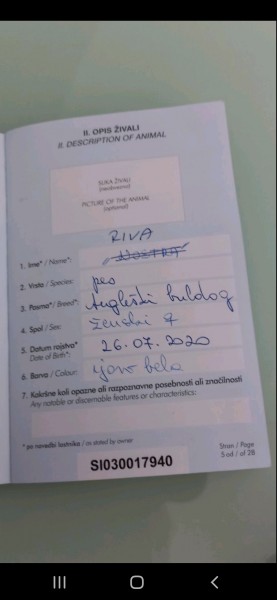 II. OPIS ŽIVALI
II. DESCRIPTION OF ANIMAL
SLIKA ŽIVALI
(neobvezno)
PICTURE OF THE ANIMAL
(optional)
RIVA
1. Ime* / Name*:
2. Vrsta / Species: pes
3. Pasma* / Breed*: Angleški buldog
4. Spol / Sex: ženski ♀
5. Datum rojstva* 26.07.2020
Date of Birth*:
6. Barva / Colour: bela
7. Kakšne koli opazne ali razpoznavne posebnosti ali značilnosti
Any notable or discernable features or characteristics:
* po navedbi lastnika / as stated by owner
Stran / Page
5 od / of 28
SI030017940